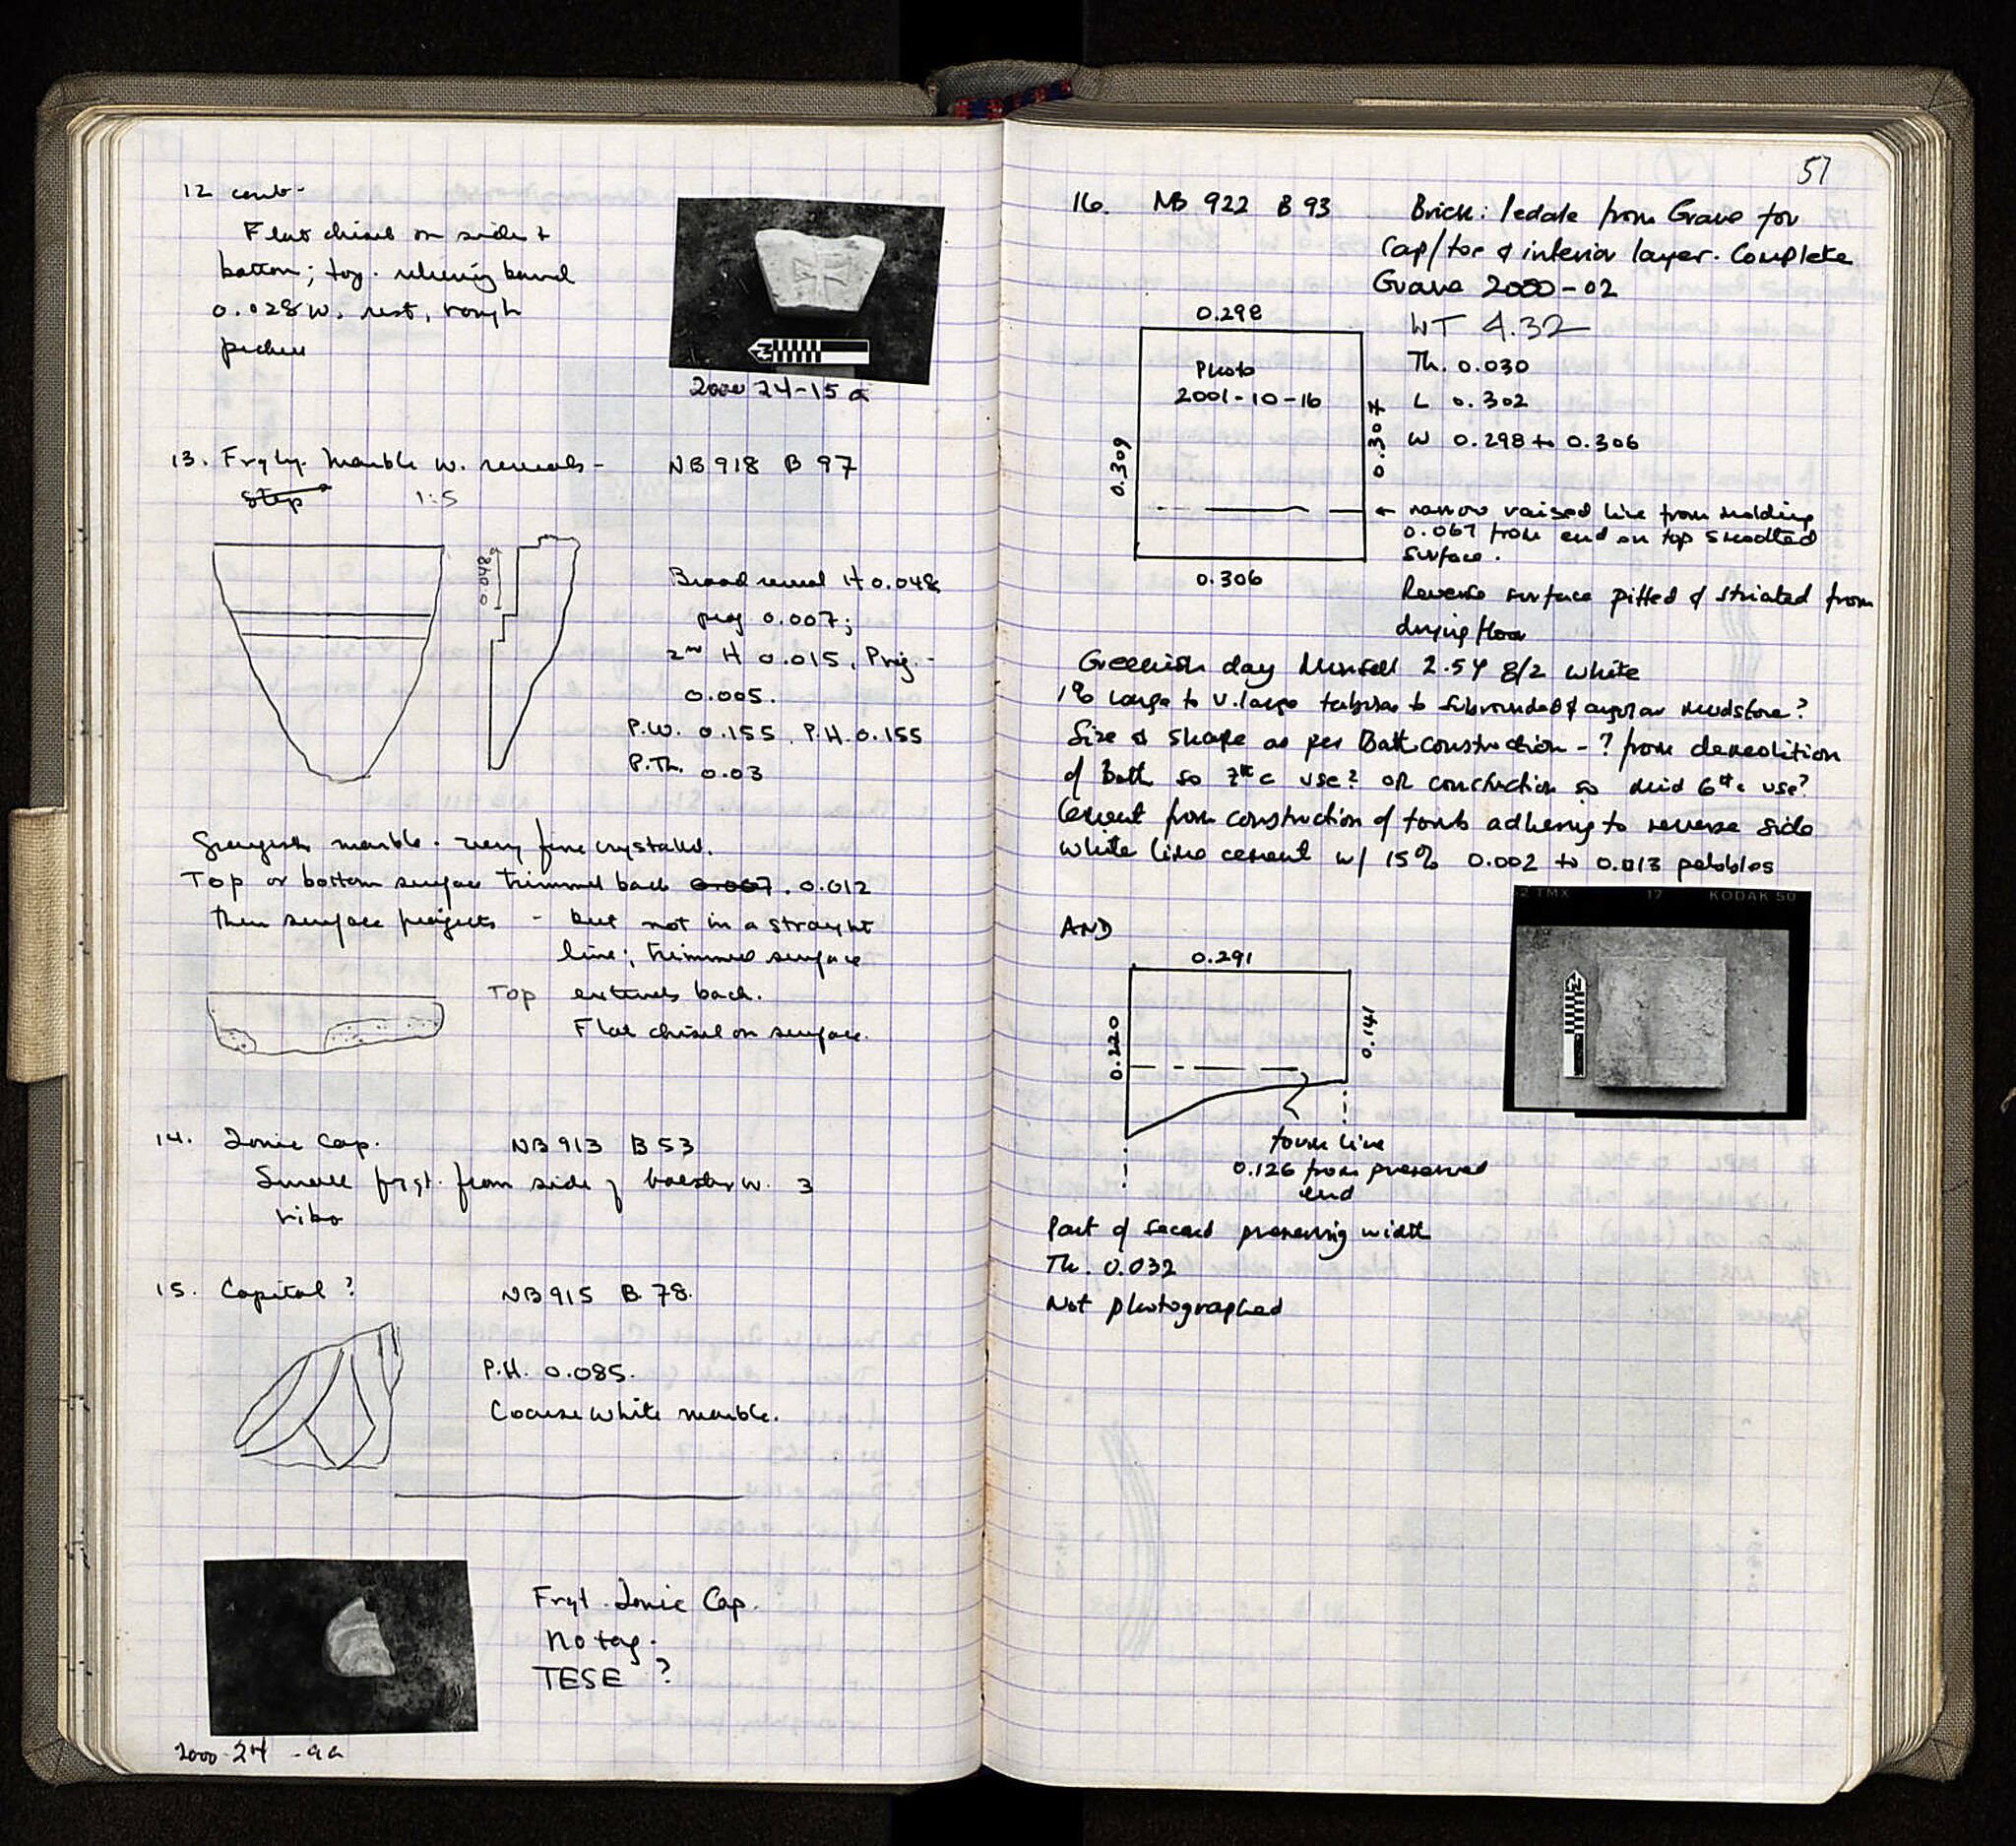 12 cont-
Flat chisel on side &
bottom; top. relieving band
0.028 W. rest, rough
picked
2000 24-15 a
13. Frgt. Marble w. reveals - NB 918 B 97
Step 1:5
0.048
Broad reveal H 0.048
proj 0.007;
2nd H 0.015, Proj. -
0.005.
P.W. 0.155, P.H. 0.155
P.Th. 0.03
Greyish marble. very fine crystalled.
Top or bottom surface trimmed back 0.007. 0.012
then surface projects - but not in a straight
line; trimmed surface
Top extends back.
Flat chisel on surface.
14. Ionic Cap. NB 913 B 53
Small frgt. from side of bolster w. 3
ribs
15. Capital? NB 915 B 78.
P.H. 0.085.
Coarse white marble.
Frgt. Ionic Cap.
No tag.
TESE ?
2000-24 -9a
57
16. NB 922 B 93 Brick: Pedale from Grave for
Cap/top & interior layer. Complete
Grave 2000-02
WT 4.32
0.298
Photo
2001-10-16
0.309
0.304
0.306
Th. 0.030
L 0.302
W 0.298 to 0.306
← narrow raised line from molding
0.067 from end on top smoothed
surface.
Reverse surface pitted & striated from
drying floor
Greenish clay Munsell 2.5Y 8/2 white
1% large to v. large tabular to subrounded & angular mudstone?
Size & shape as per Bath construction - ? from demolition
of Bath so 7th c use? OR construction so mid 6th c use?
Cement from construction of tomb adhering to reverse side
White lime cement w/ 15% 0.002 to 0.013 pebbles
22 TMX 17 KODAK 50
AND
0.291
0.220
0.141
0.126 from preserved
end
Part of second preserving width
Th. 0.032
Not photographed